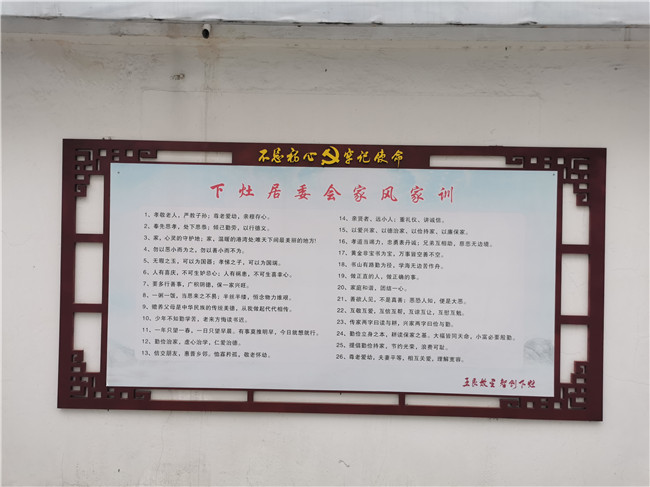 不忘初心 牢记使命
下灶居委会家风家训
1、孝敬老人,严教子孙;尊老爱幼,亲穆存心。
2、奉先思孝,处下思恭;倾己勤劳,以行德义。
3、家,心灵的守护地;家,温暖的港湾处;难天下间最美丽的地方!
4、勿以恶小而为之,勿以善小而不为。
5、无瑕之玉,可以为国器;孝悌之子,可以为国瑞。
6、人有喜庆,不可生妒忌心;人有祸患,不可生喜幸心。
7、要多行善事,广积阴德,保一家兴旺。
8、一粥一饭,当思来之不易;半丝半缕,恒念物力维艰。
9、赡养父母是中华民族的传统美德,从我做起代代相传。
10、少年不知勤学苦,老来方悔读书迟。
11、一年只望一春,一日只望早晨。有事直推明早,今日就想就行。
12、勤俭治家,虚心治学,仁爱治德。
13、信交朋友,惠普乡邻。恤寡矜孤,敬老怀幼。
14、亲贤者,远小人;重礼仪,讲诚信。
15、以爱兴家,以德治家,以俭持家,以廉保家。
16、孝道当竭力,忠勇表丹诚;兄弟互相助,慈悲无边境。
17、黄金非宝书为宝,万事皆空善不空。
18、书山有路勤为径,学海无边苦作舟。
19、做正直的人,做正确的事。
20、家庭和谐,团结一心。
21、善欲人见,不是真善;恶恐人知,便是大恶。
22、互敬互爱,互信互帮,互谅互让,互慰互勉。
23、传家两字曰读与耕,兴家两字曰俭与勤。
24、勤俭立身之本,耕读保家之基。大福皆同天命,小富必要殷勤。
25、提倡勤俭持家,节约光荣,浪费可耻。
26、尊老爱幼,夫妻平等。相互关爱,理解宽容。